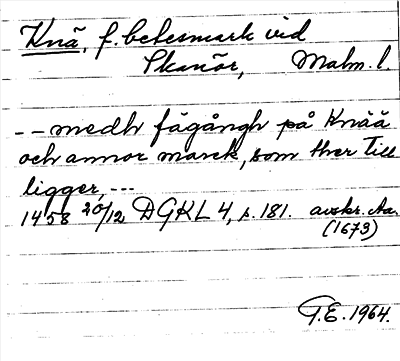 Knä, f. betesmark vid
Skanör, Malm. l.
-- medh fägångh på Knää
och annor marck, som ther till
ligger, ---
1458 20/12 DGKL 4, s. 181. avskr. Aa.
(1673)
G.E. 1964.